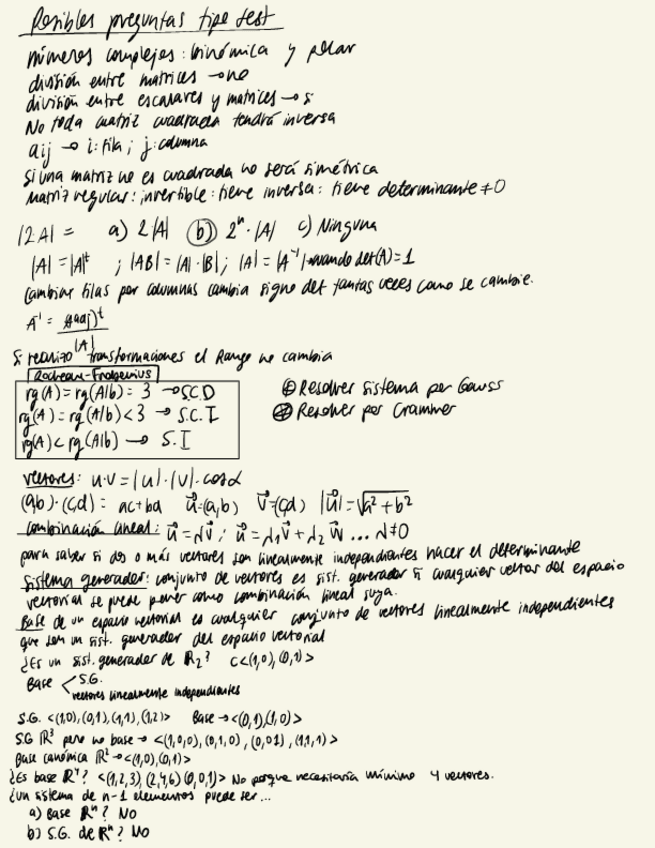 Posibles preguntas tipo test
números complejos: binómica y polar
división entre matrices → no
división entre escalares y matrices → si
No toda matriz cuadrada tendrá inversa
aij → i: fila; j: columna
Si una matriz no es cuadrada no será simétrica
Matriz regular: invertible: tiene inversa: tiene determinante ≠ 0
|2A| = a) 2|A| b) 2ⁿ·|A| c) Ninguna
|A| = |A|ᵗ ; |AB| = |A|·|B| ; |A| = |A⁻¹| → cuando det(A) = 1
Cambiar filas por columnas cambia signo det tantas veces como se cambie.
A⁻¹ = (adj)ᵗ / |A|
Si realizo transformaciones el Rango no cambia
Rocheau-Frobenius
rg(A) = rg(A/b) = 3 → S.C.D
rg(A) = rg(A/b) < 3 → S.C.I
rg(A) < rg(A/b) → S.I
① Resolver sistema por Gauss
② Resolver por Crammer
vectores: u·v = |u|·|v|·cosα
(a,b)·(c,d) = ac+bd u⃗=(a,b) v⃗=(c,d) |u⃗| = √a²+b²
combinación lineal: u⃗ = λv⃗ ; u⃗ = λ₁v⃗ + λ₂w⃗ ... λ≠0
para saber si dos o más vectores son linealmente independientes hacer el determinante
Sistema generador: conjunto de vectores es sist. generador si cualquier vector del espacio
vectorial se puede poner como combinación lineal suya.
Base de un espacio vectorial es cualquier conjunto de vectores linealmente independientes
que son un sist. generador del espacio vectorial
¿Es un sist. generador de R₂? C<(1,0),(0,1)>
Base < S.G.
vectores linealmente independientes
S.G. <(1,0),(0,1),(1,1),(1,2)> Base → <(0,1),(1,0)>
S.G ℝ³ pero no base → <(1,0,0),(0,1,0),(0,0,1),(1,1,1)>
Base canónica ℝ² → <(1,0),(0,1)>
¿Es base ℝ⁴? <(1,2,3),(2,4,6),(0,0,1)> No porque necesitaría mínimo 4 vectores.
¿un sistema de n-1 elementos puede ser...
a) Base ℝⁿ? No
b) S.G. de ℝⁿ? No